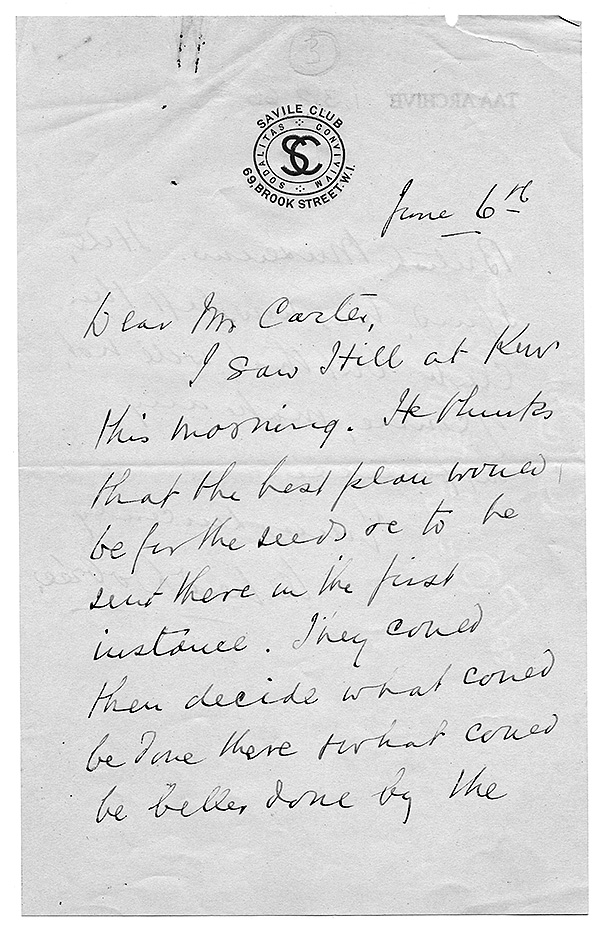 3
TAA ARCHIVE
SAVILE CLUB
SODALITAS CONVIVIUM
SC
69, BROOK STREET. W.1.
June 6th
Dear Mr Carter,
I saw Hill at Kew
this morning. He thinks
that the best plan would
be for the seeds &c to be
sent there in the first
instance. They could
then decide what could
be done there & what could
be better done by the